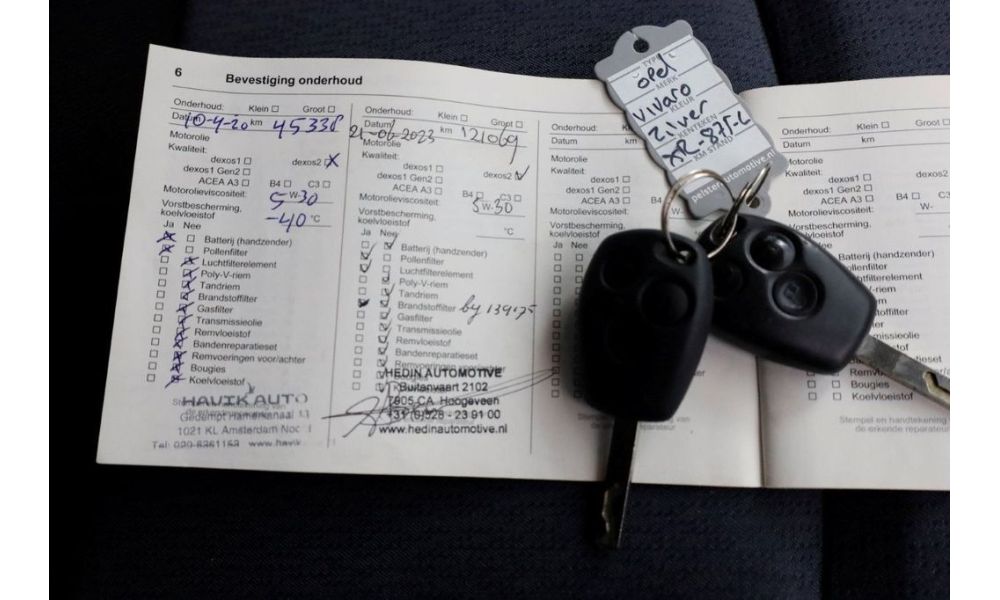 6
Bevestiging onderhoud
Onderhoud: Klein Groot
Datum 10-4-20 km 45338
Motorolie
Kwaliteit:
dexos1 dexos2 X
dexos1 Gen2
ACEA A3 B4 C3
Motorolieviscositeit: 5 W- 30
Vorstbescherming,
koelvloeistof -40 °C
Ja Nee
Batterij (handzender)
Pollenfilter
Luchtfilterelement
Poly-V-riem
Tandriem
Brandstoffilter
Gasfilter
Transmissieolie
Remvloeistof
Bandenreparatieset
Remvoeringen voor/achter
Bougies
Koelvloeistof
HAVIK AUTO
Gedempt Hamerkanaal
1021 KL Amsterdam
Tel: 020-6361163 www.havik
Onderhoud: Klein Groot
Datum 21-06-2023 km 121069
Motorolie
Kwaliteit:
dexos1 dexos2
dexos1 Gen2
ACEA A3 B4 C3
Motorolieviscositeit: 5 W- 30
Vorstbescherming,
koelvloeistof °C
Ja Nee
Batterij (handzender)
Pollenfilter
Luchtfilterelement
Poly-V-riem
Tandriem
Brandstoffilter by 139175
Gasfilter
Transmissieolie
Remvloeistof
Bandenreparatieset
Remvoeringen voor/achter
HEDIN AUTOMOTIVE
Buitenvaart 2102
7905 CA Hoogeveen
+31 (0)528 - 23 91 00
www.hedinautomotive.nl
Onderhoud: Klein
Datum km
Motorolie
Kwaliteit:
dexos1
dexos1 Gen2
ACEA A3
Motorolieviscositeit:
Vorstbescherming,
koelvloeistof
Ja Nee
Onderhoud: Klein Groot
Datum km
Motorolie
Kwaliteit:
dexos1 dexos2
dexos1 Gen2
ACEA A3 B4 C3
Motorolieviscositeit: W-
Vorstbescherming,
koelvloeistof °C
Ja Nee
Batterij (handzender)
Pollenfilter
Luchtfilterelement
Poly-V-riem
Bougies
Koelvloeistof
Stempel en handtekening
de erkende reparateur
TYPE
Opel
MERK
Vivaro
KLEUR
Zilver
KENTEKEN
XR-875-L
KM STAND
pelsterautomotive.nl